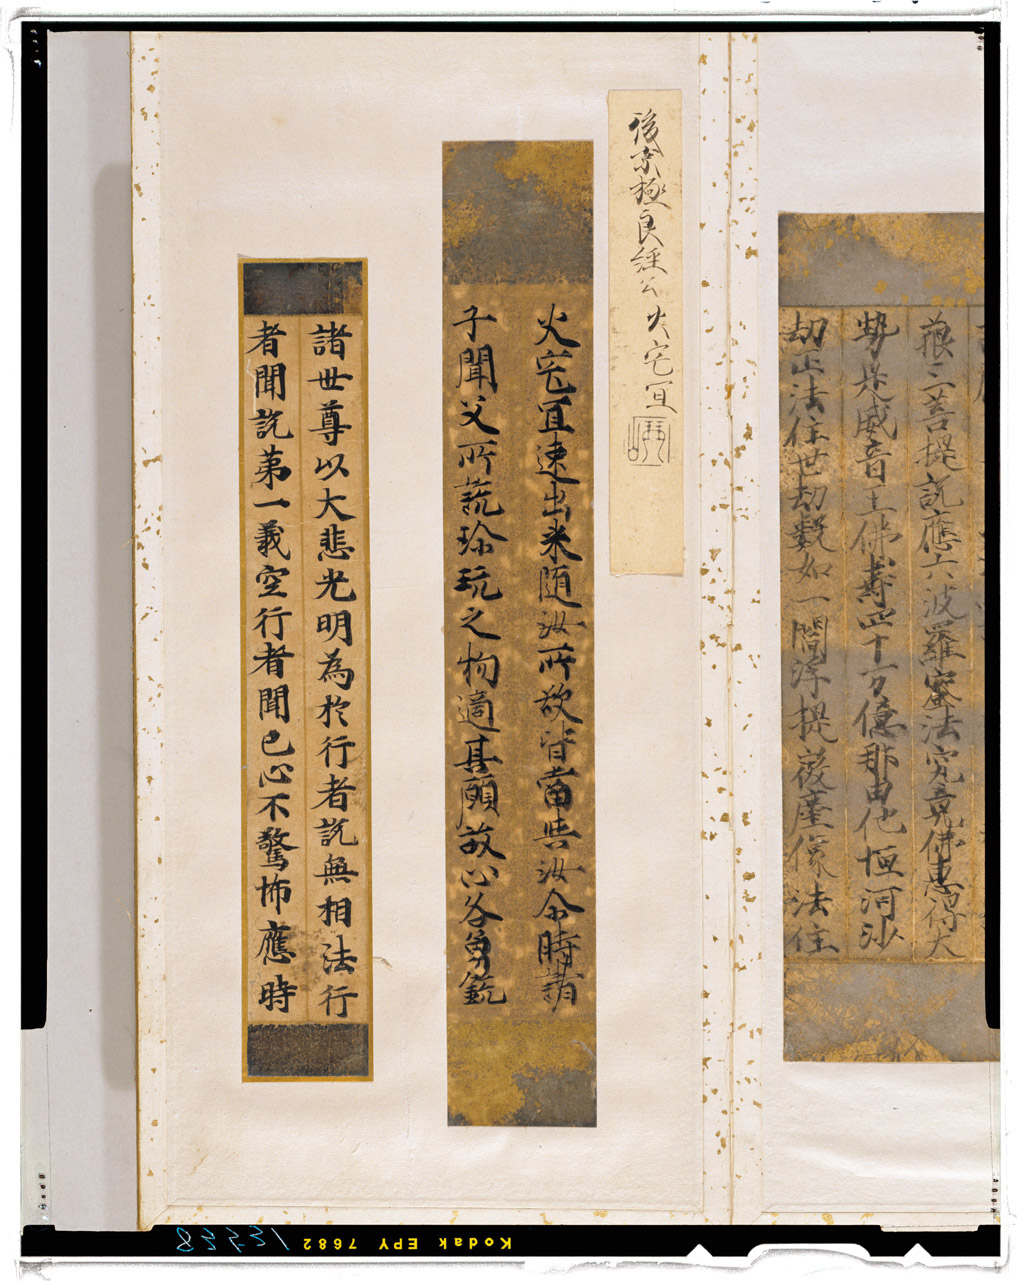 法住世劫數如一閻浮提微塵像法住
勢是威音王佛壽四十万億那由他恒河沙
藐三菩提說應六波羅蜜法究竟佛惠得大
後京極良経公 火宅宜
火宅宜速出来随汝所欲皆當与汝尒時諸
子聞父所說珎玩之物適其願故心各勇銳
諸世尊以大悲光明為於行者說無相法行
者聞說第一義空行者聞已心不驚怖應時
Kodak EPY 7682